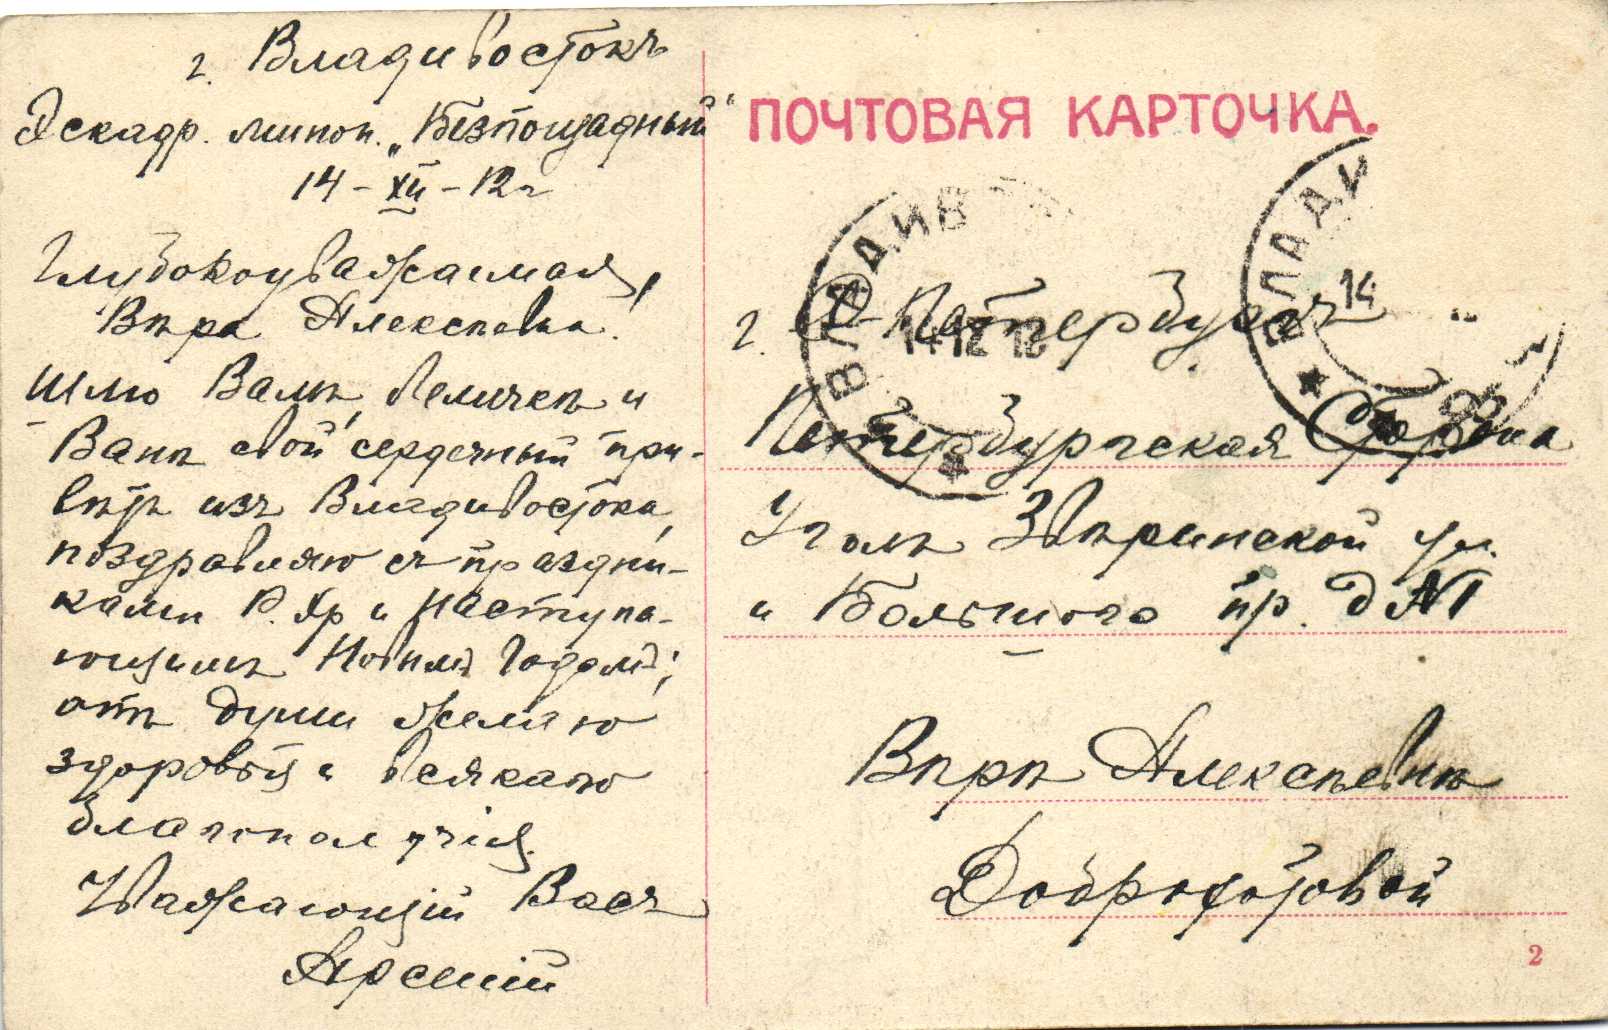 г. Владивостокъ
Эскадр. минон. „Безпощадный“
14-XII-12г
Глубокоуважаемая,
Вѣра Алексѣевна!
Шлю Вамъ, Величкѣ и
Ванѣ свой сердечный при-
вѣтъ изъ Владивостока,
поздравляю съ праздни-
ками Р. Хр и Наступа-
ющимъ Новымъ Годомъ;
отъ души желаю
здоровья и всякаго
благополучія.
Уважающій Васъ
Арсеній
ПОЧТОВАЯ КАРТОЧКА.
ВЛАДИВ
14 12 12
ВЛАДИ
14
г. С-Петербургъ
Петербургская Сторона
Уголъ Звѣринской ул.
и Большого пр. д №1
Вѣрѣ Алексѣевнѣ
Доброхотовой
2